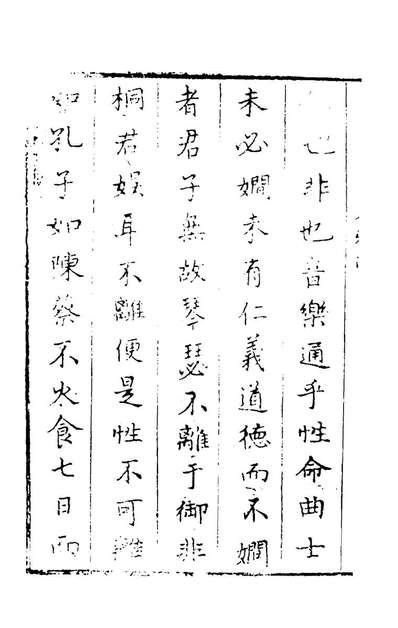 也非也音樂通乎性命曲士
未必嫺未有仁義道德而不嫺
者君子無故琴瑟不離于御非
桐若娛耳不離便是性不可離
如孔子如陳蔡不火食七日而